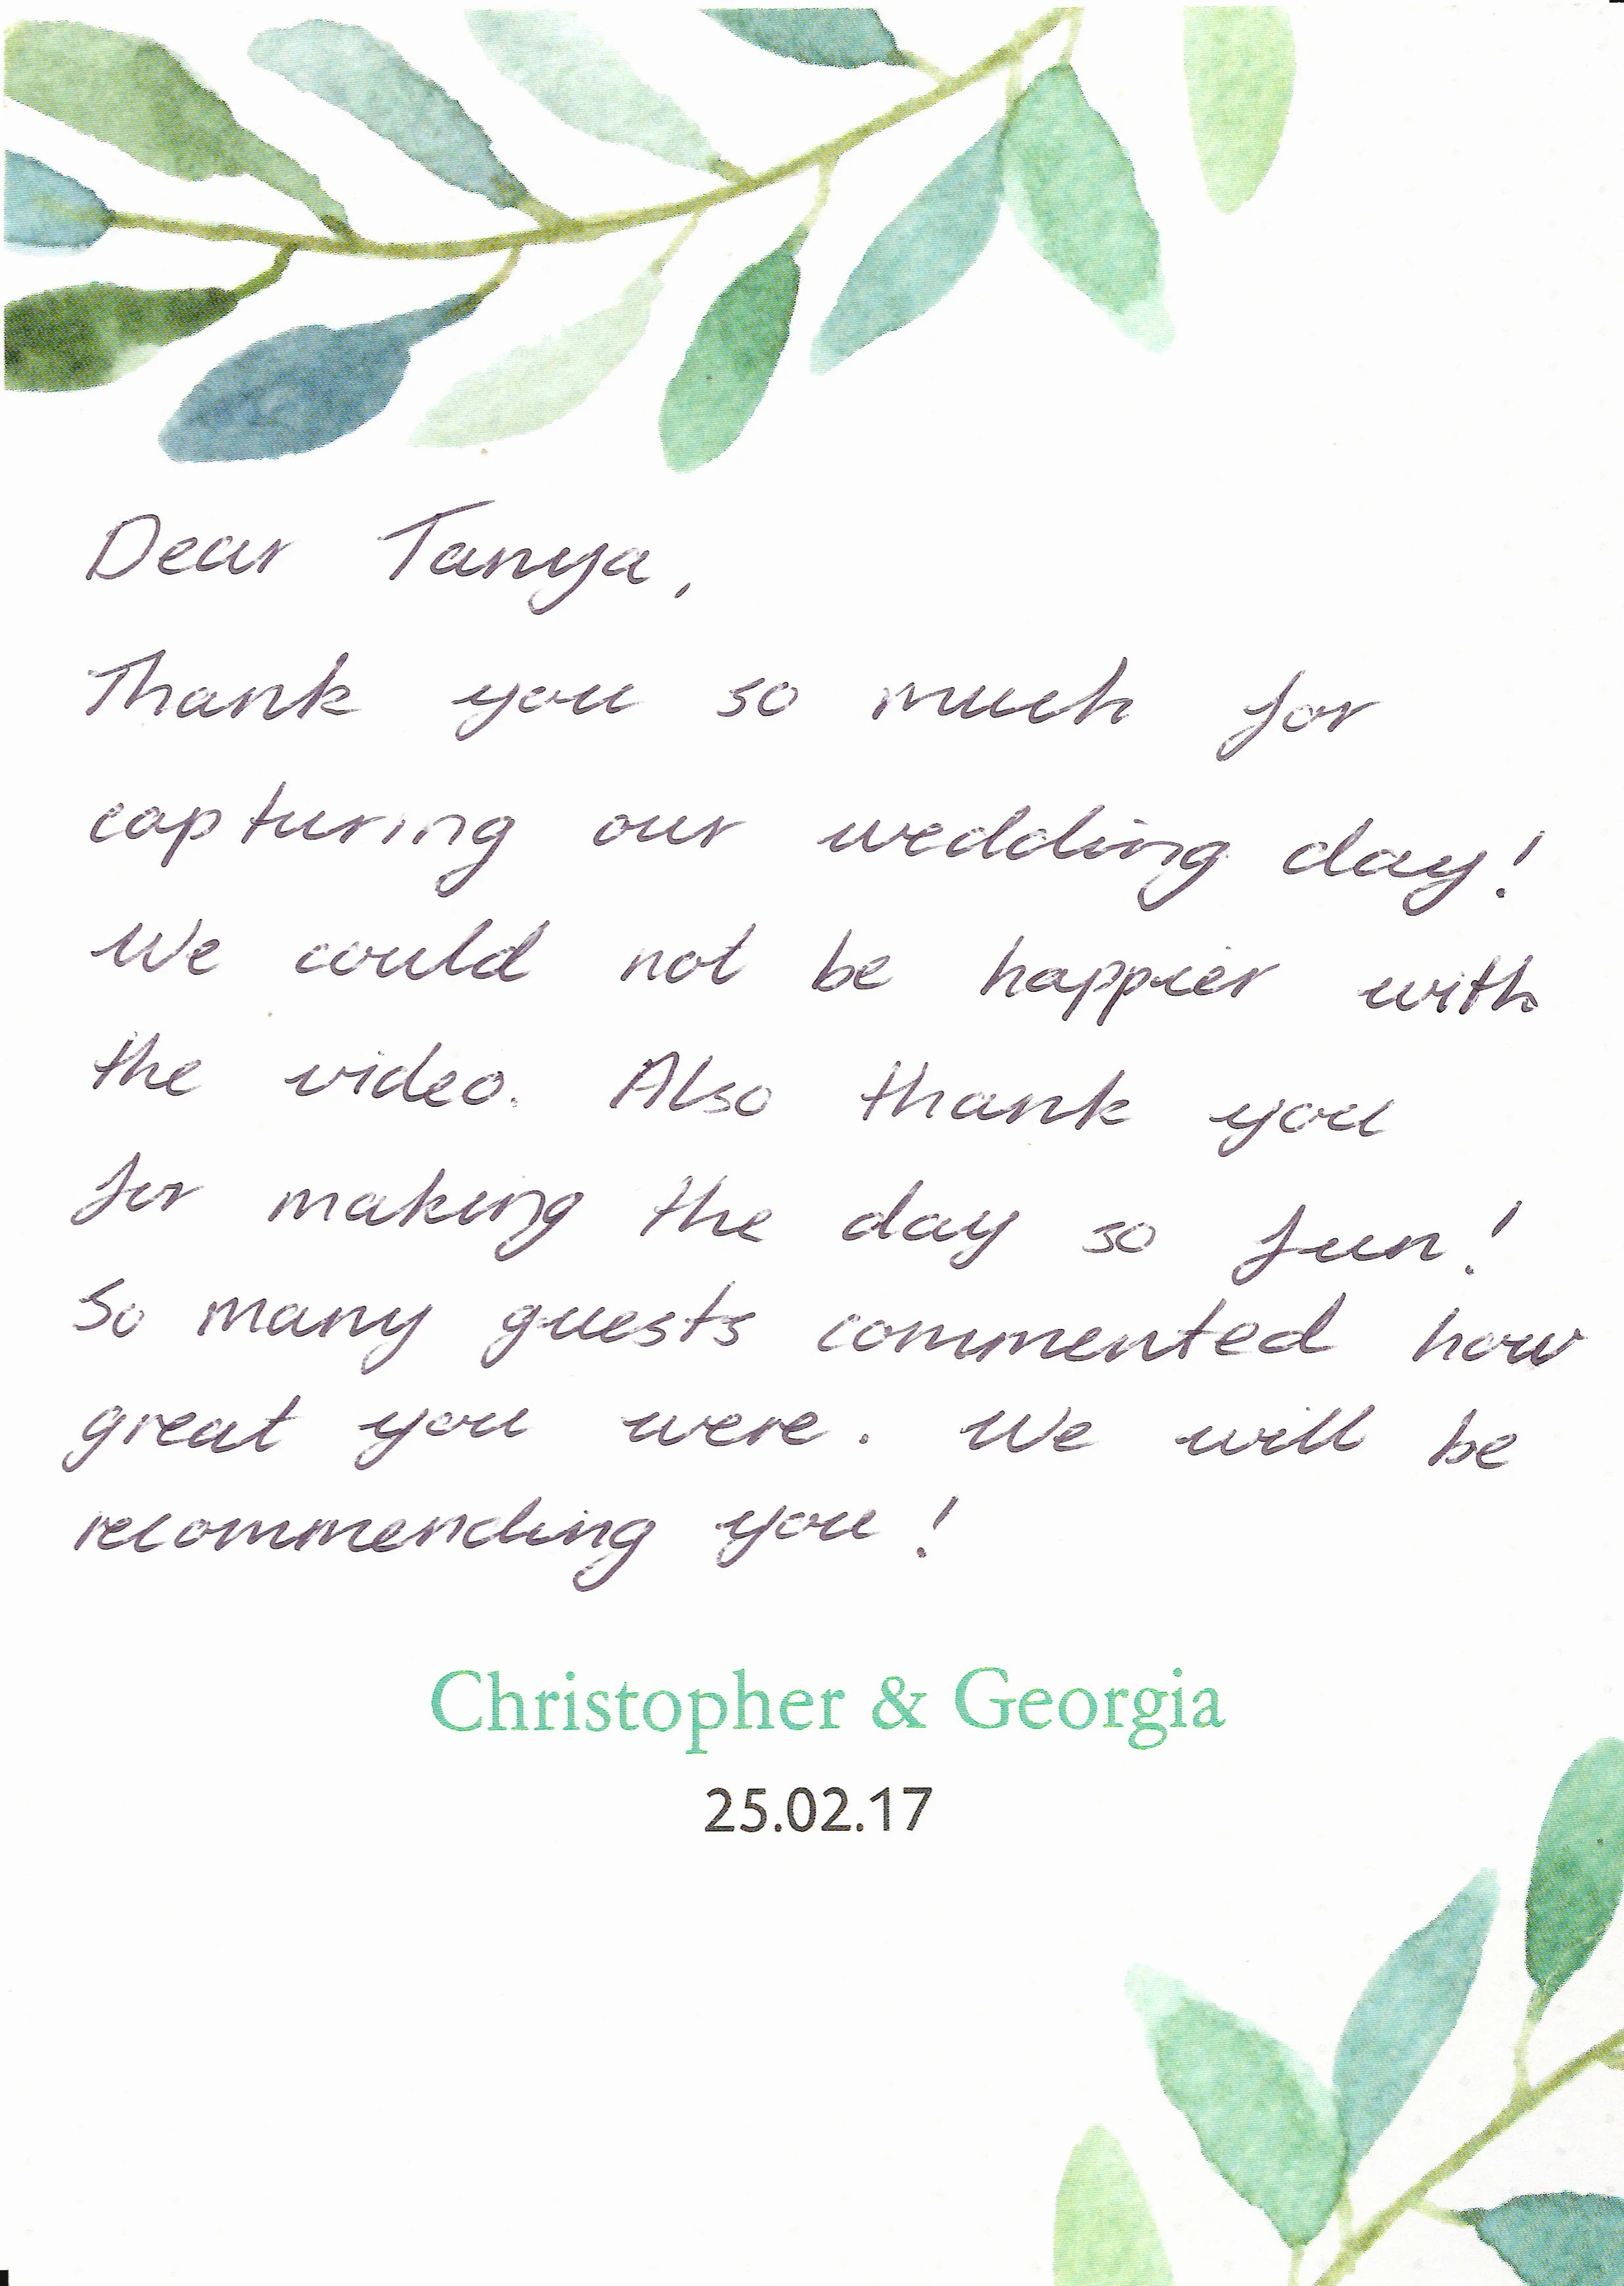 Dear Tanya,
Thank you so much for
capturing our wedding day!
We could not be happier with
the video. Also thank you
for making the day so fun!
So many guests commented how
great you were. We will be
recommending you!
Christopher & Georgia
25.02.17